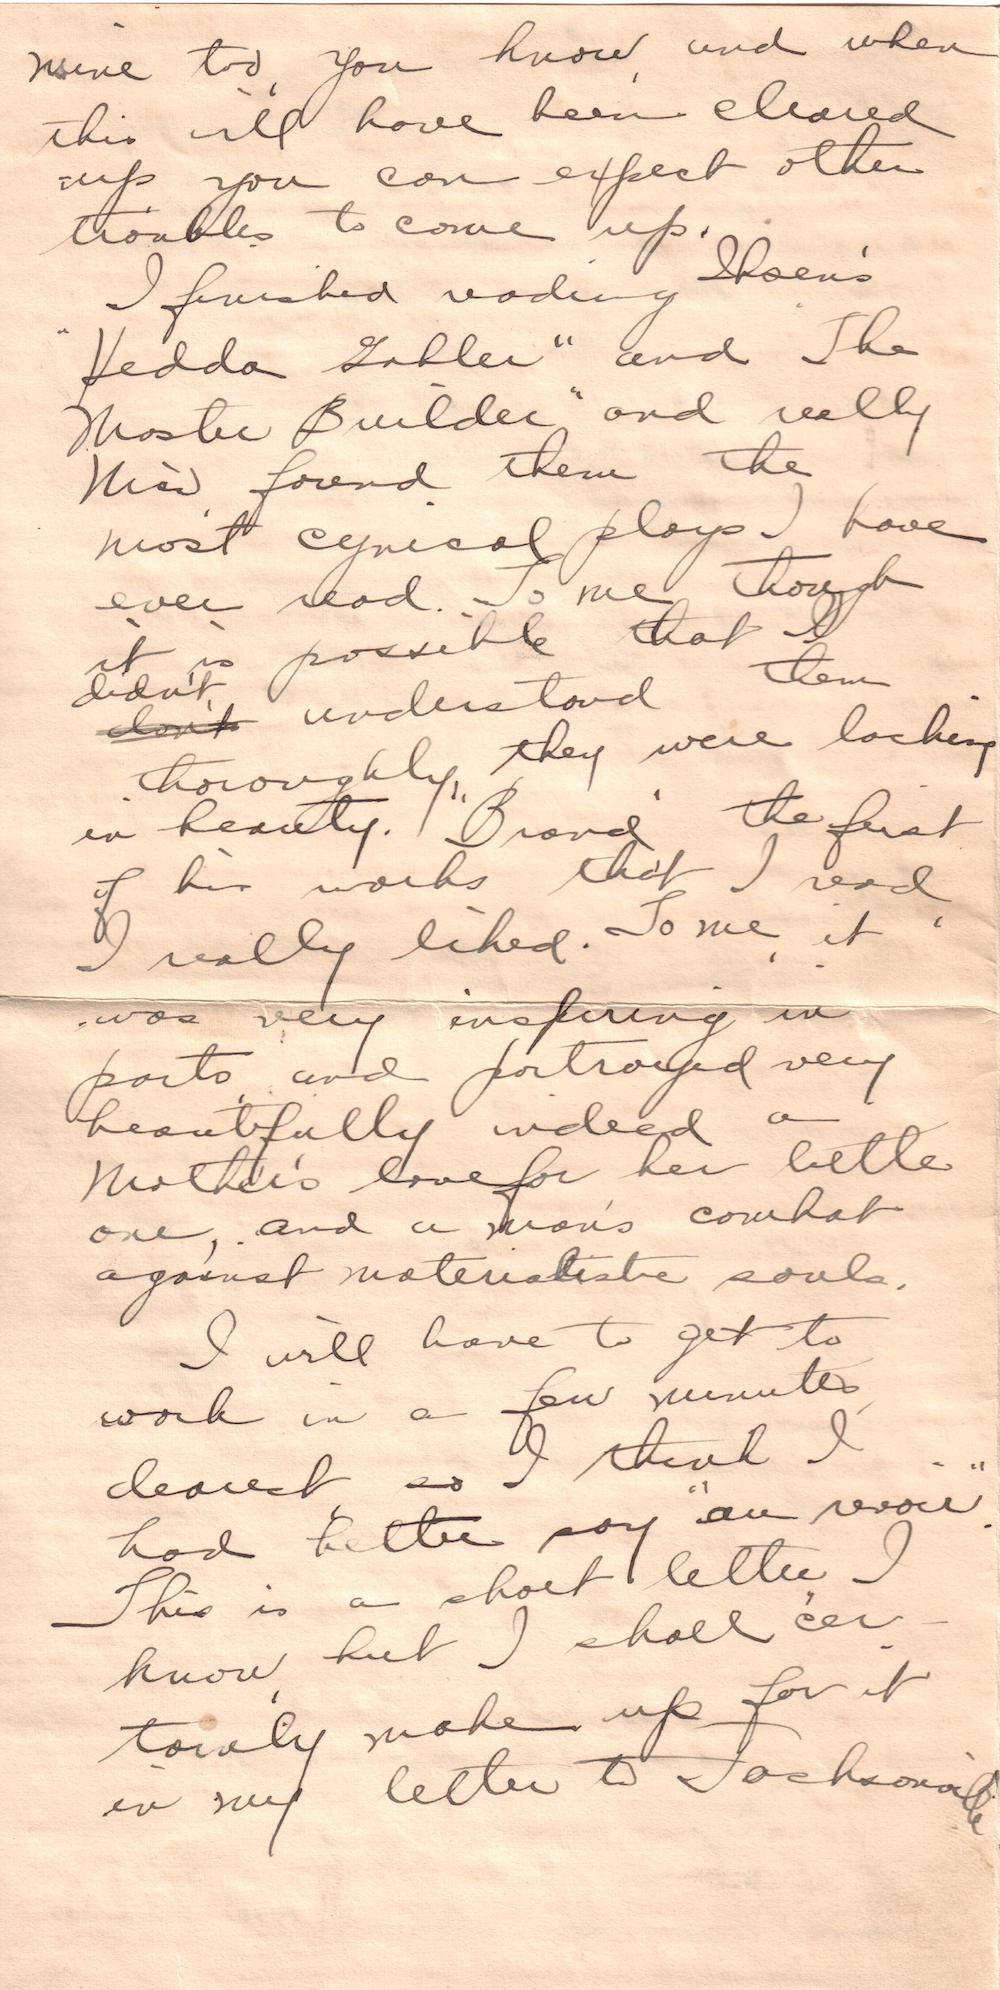 mine too, you know, and when
this will have been cleared
up you can expect other
troubles to come up.
I finished reading Ibsen's
"Hedda Gabler" and The
Master Builder" and really
found them the
most cynical plays I have
ever read. To me though
it is possible that I
didn't
don't understand them
thoroughly, they were lacking
in beauty. "Brand" the first
of his works that I read
I really liked. To me, it
was very inspiring in
parts, and portrayed very
beautifully indeed a
Mother's love for her little
one, and a man's combat
against materialistic souls.
I will have to get to
work in a few minutes,
dearest, so I think I
had better say "au revoir".
This is a short letter I
know, but I shall cer-
tainly make up for it
in my letter to Jacksonville